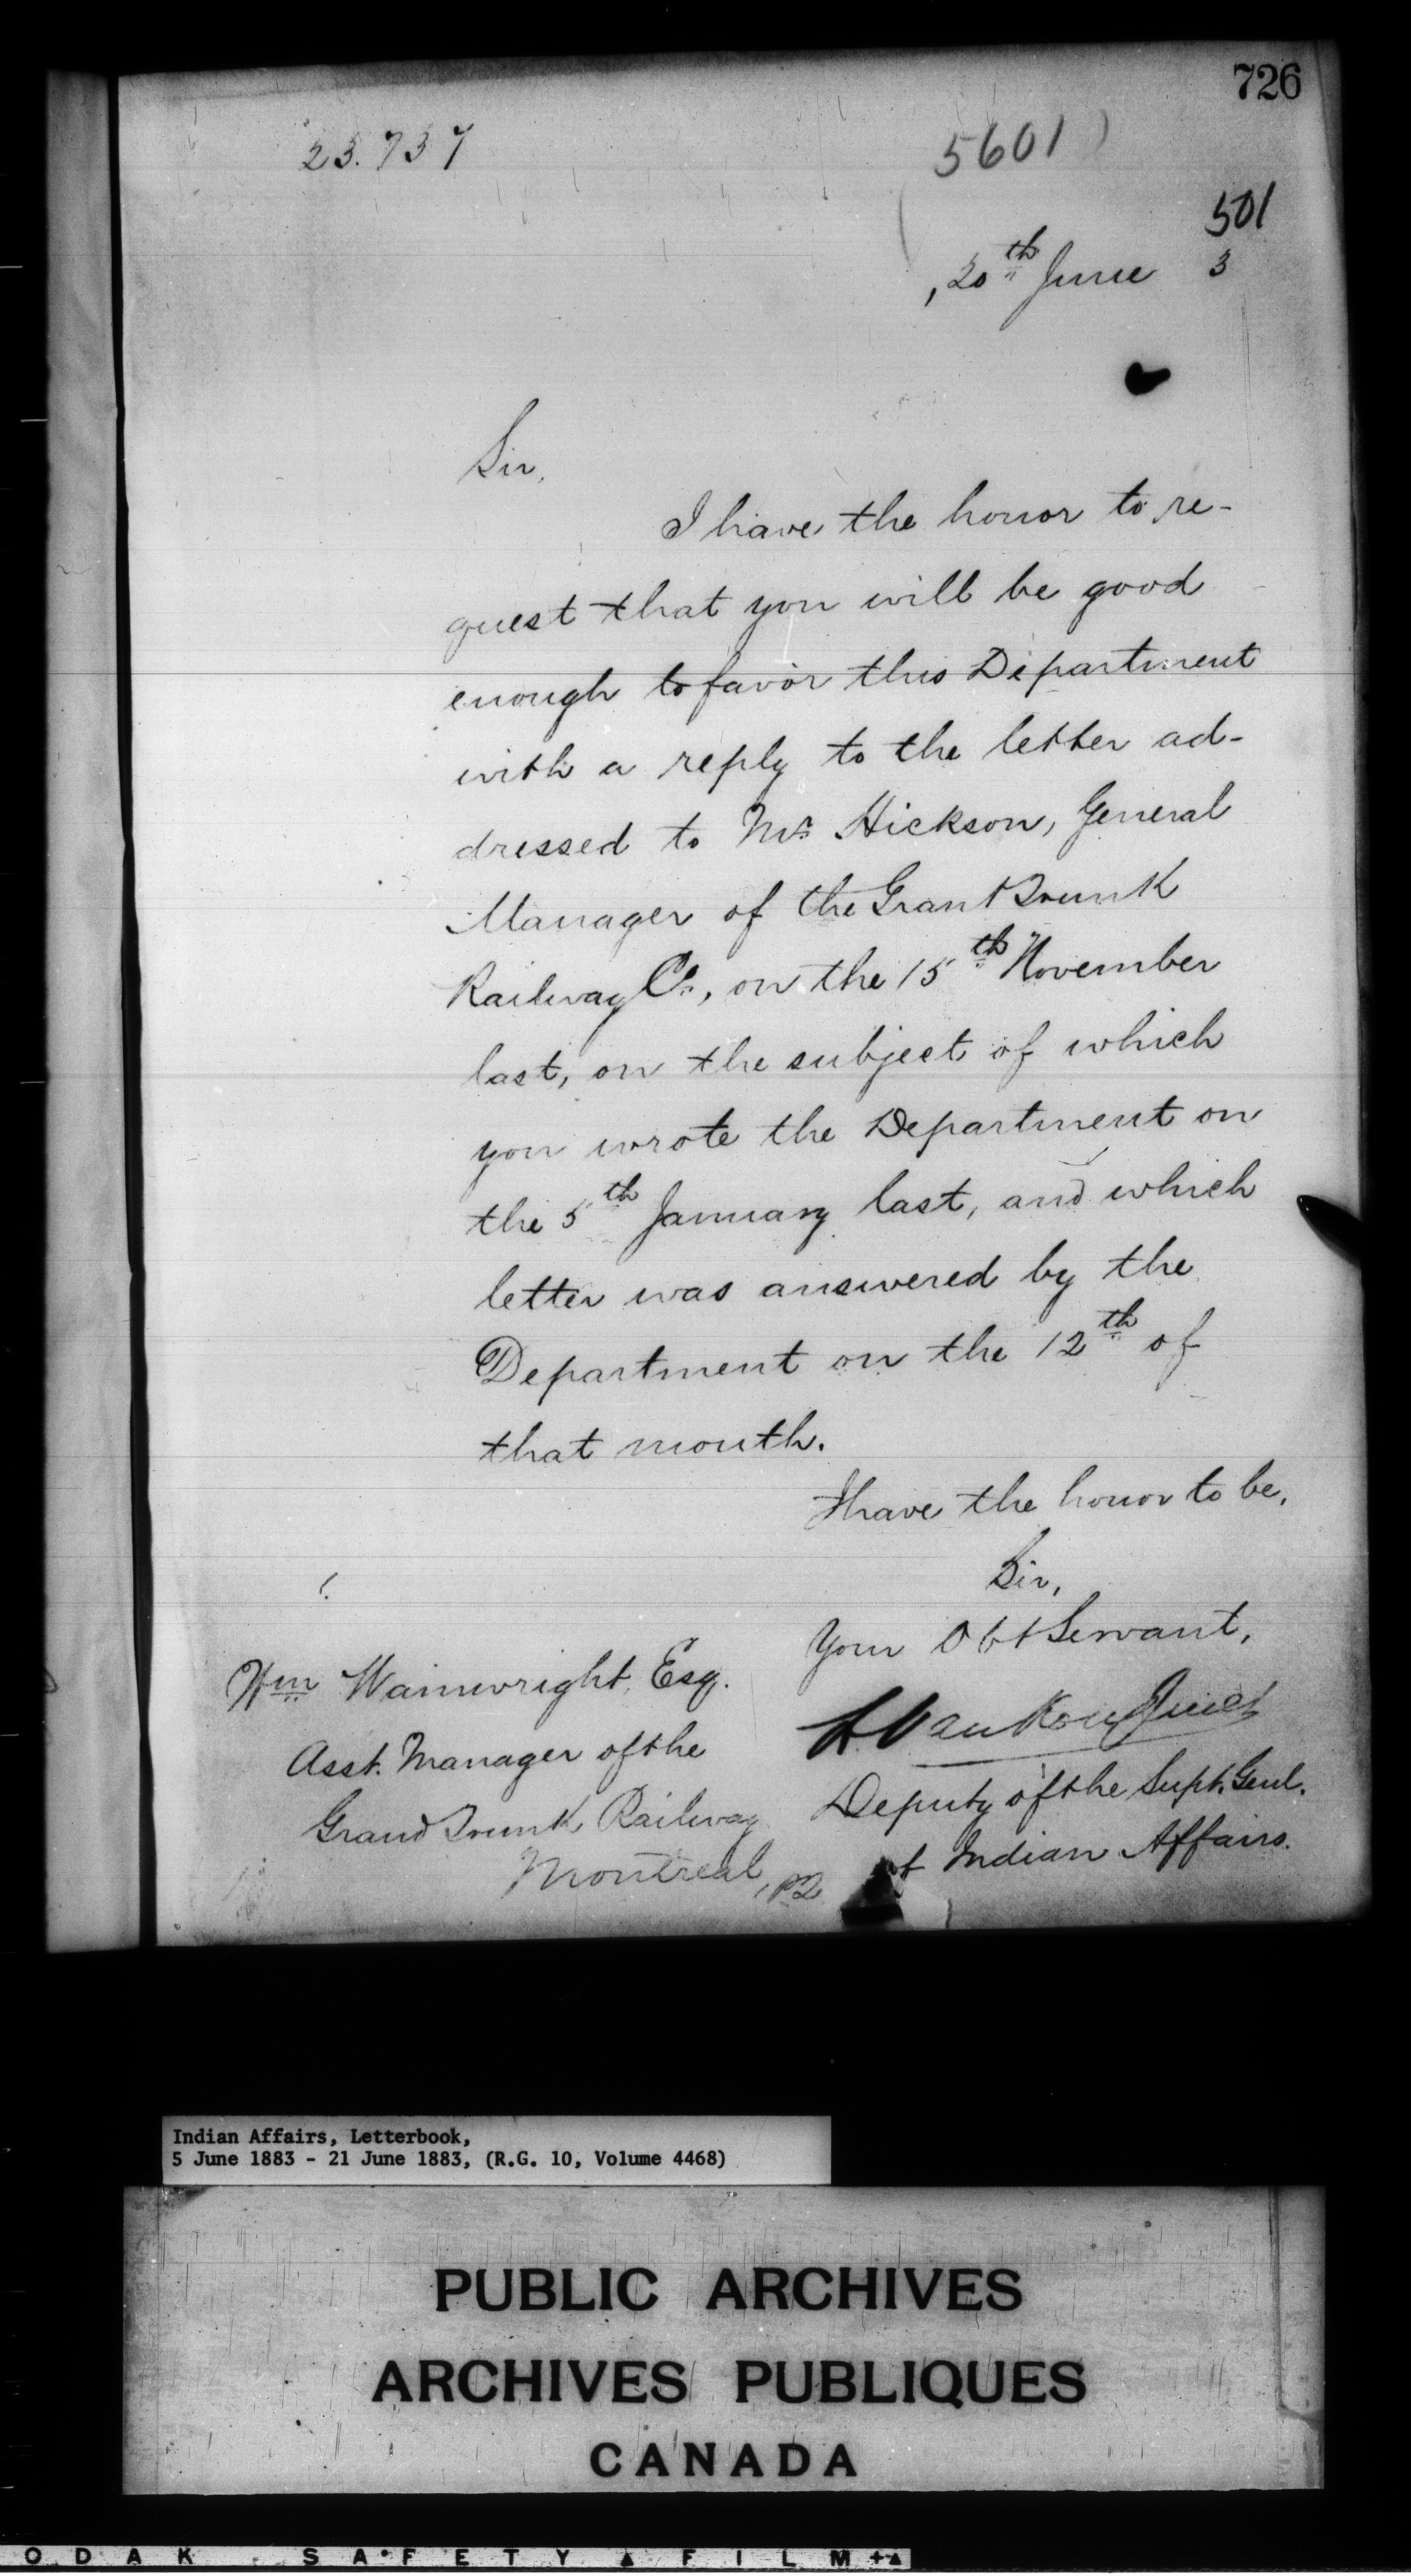 726
23.737
5601
501
20th June 3
Sir,
I have the honor to re-
quest that you will be good
enough to favor this Department
with a reply to the letter ad-
dressed to Mr. Hickson, General
Manager of the Grant Trunk
Railway Co., on the 15th November
last, on the subject of which
you wrote the Department on
the 5th January last, and which
letter was answered by the
Department on the 12th of
that month.
I have the honor to be,
Sir,
Your Obt Servant,
L. VanKoughnet
Deputy of the Supt. Genl.
of Indian Affairs.
Wm Wainwright, Esq.
Asst. Manager of the
Grand Trunk Railway
Montreal, PQ
Indian Affairs, Letterbook,
5 June 1883 - 21 June 1883, (R.G. 10, Volume 4468)
PUBLIC ARCHIVES
ARCHIVES PUBLIQUES
CANADA
ODAK SAFETY FILM